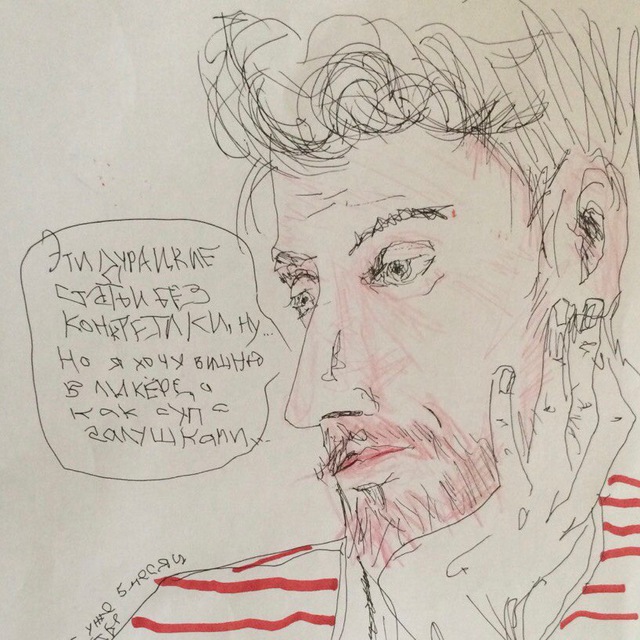 Эти дурацкие
статьи без
конкретики, ну...
Но я хочу вишню
в ликёре, а
как суп с
галушками...
уже 5 месяц